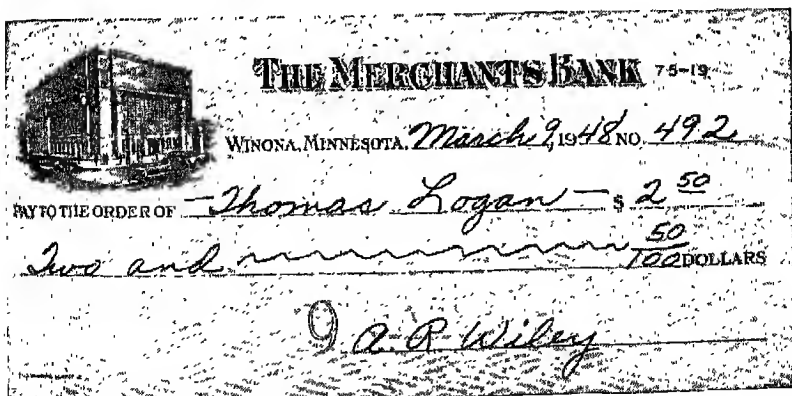 THE MERCHANTS BANK 75-19
WINONA, MINNESOTA, March 9, 1948 NO. 492
PAY TO THE ORDER OF Thomas Logan $ 2 50
Two and 50/100 DOLLARS
9 A R Wiley